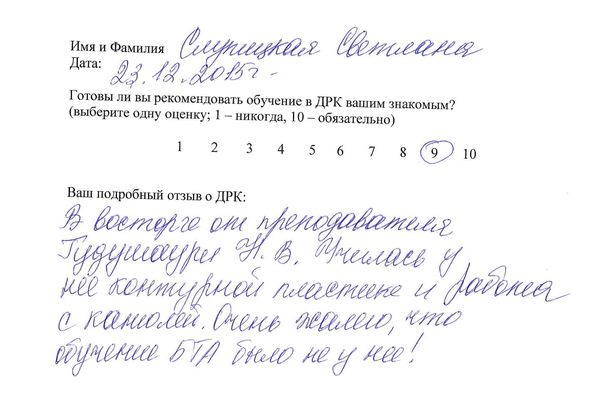 Имя и Фамилия Слупицкая Светлана
Дата: 23.12.2015г.
Готовы ли вы рекомендовать обучение в ДРК вашим знакомым?
(выберите одну оценку; 1 – никогда, 10 – обязательно)
1 2 3 4 5 6 7 8 9 10
Ваш подробный отзыв о ДРК:
В восторге от преподавателя
Гудушаури Н. В. Училась у
нее контурной пластике и работа
с канюлей. Очень жалею, что
обучение БТА было не у нее!